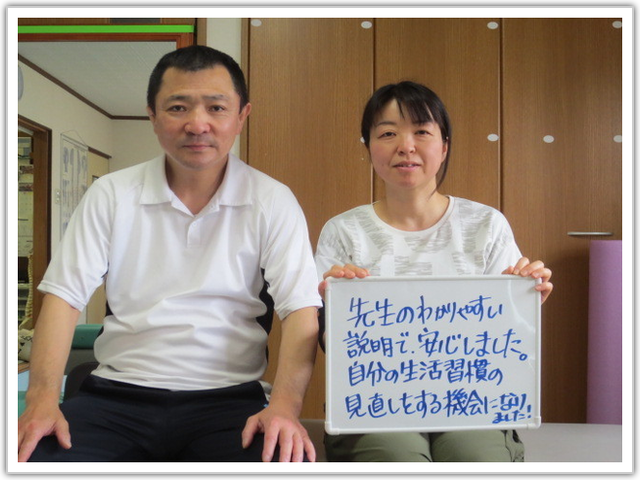 先生のわかりやすい
説明で、安心しました。
自分の生活習慣の
見直しをする機会になり
ました!